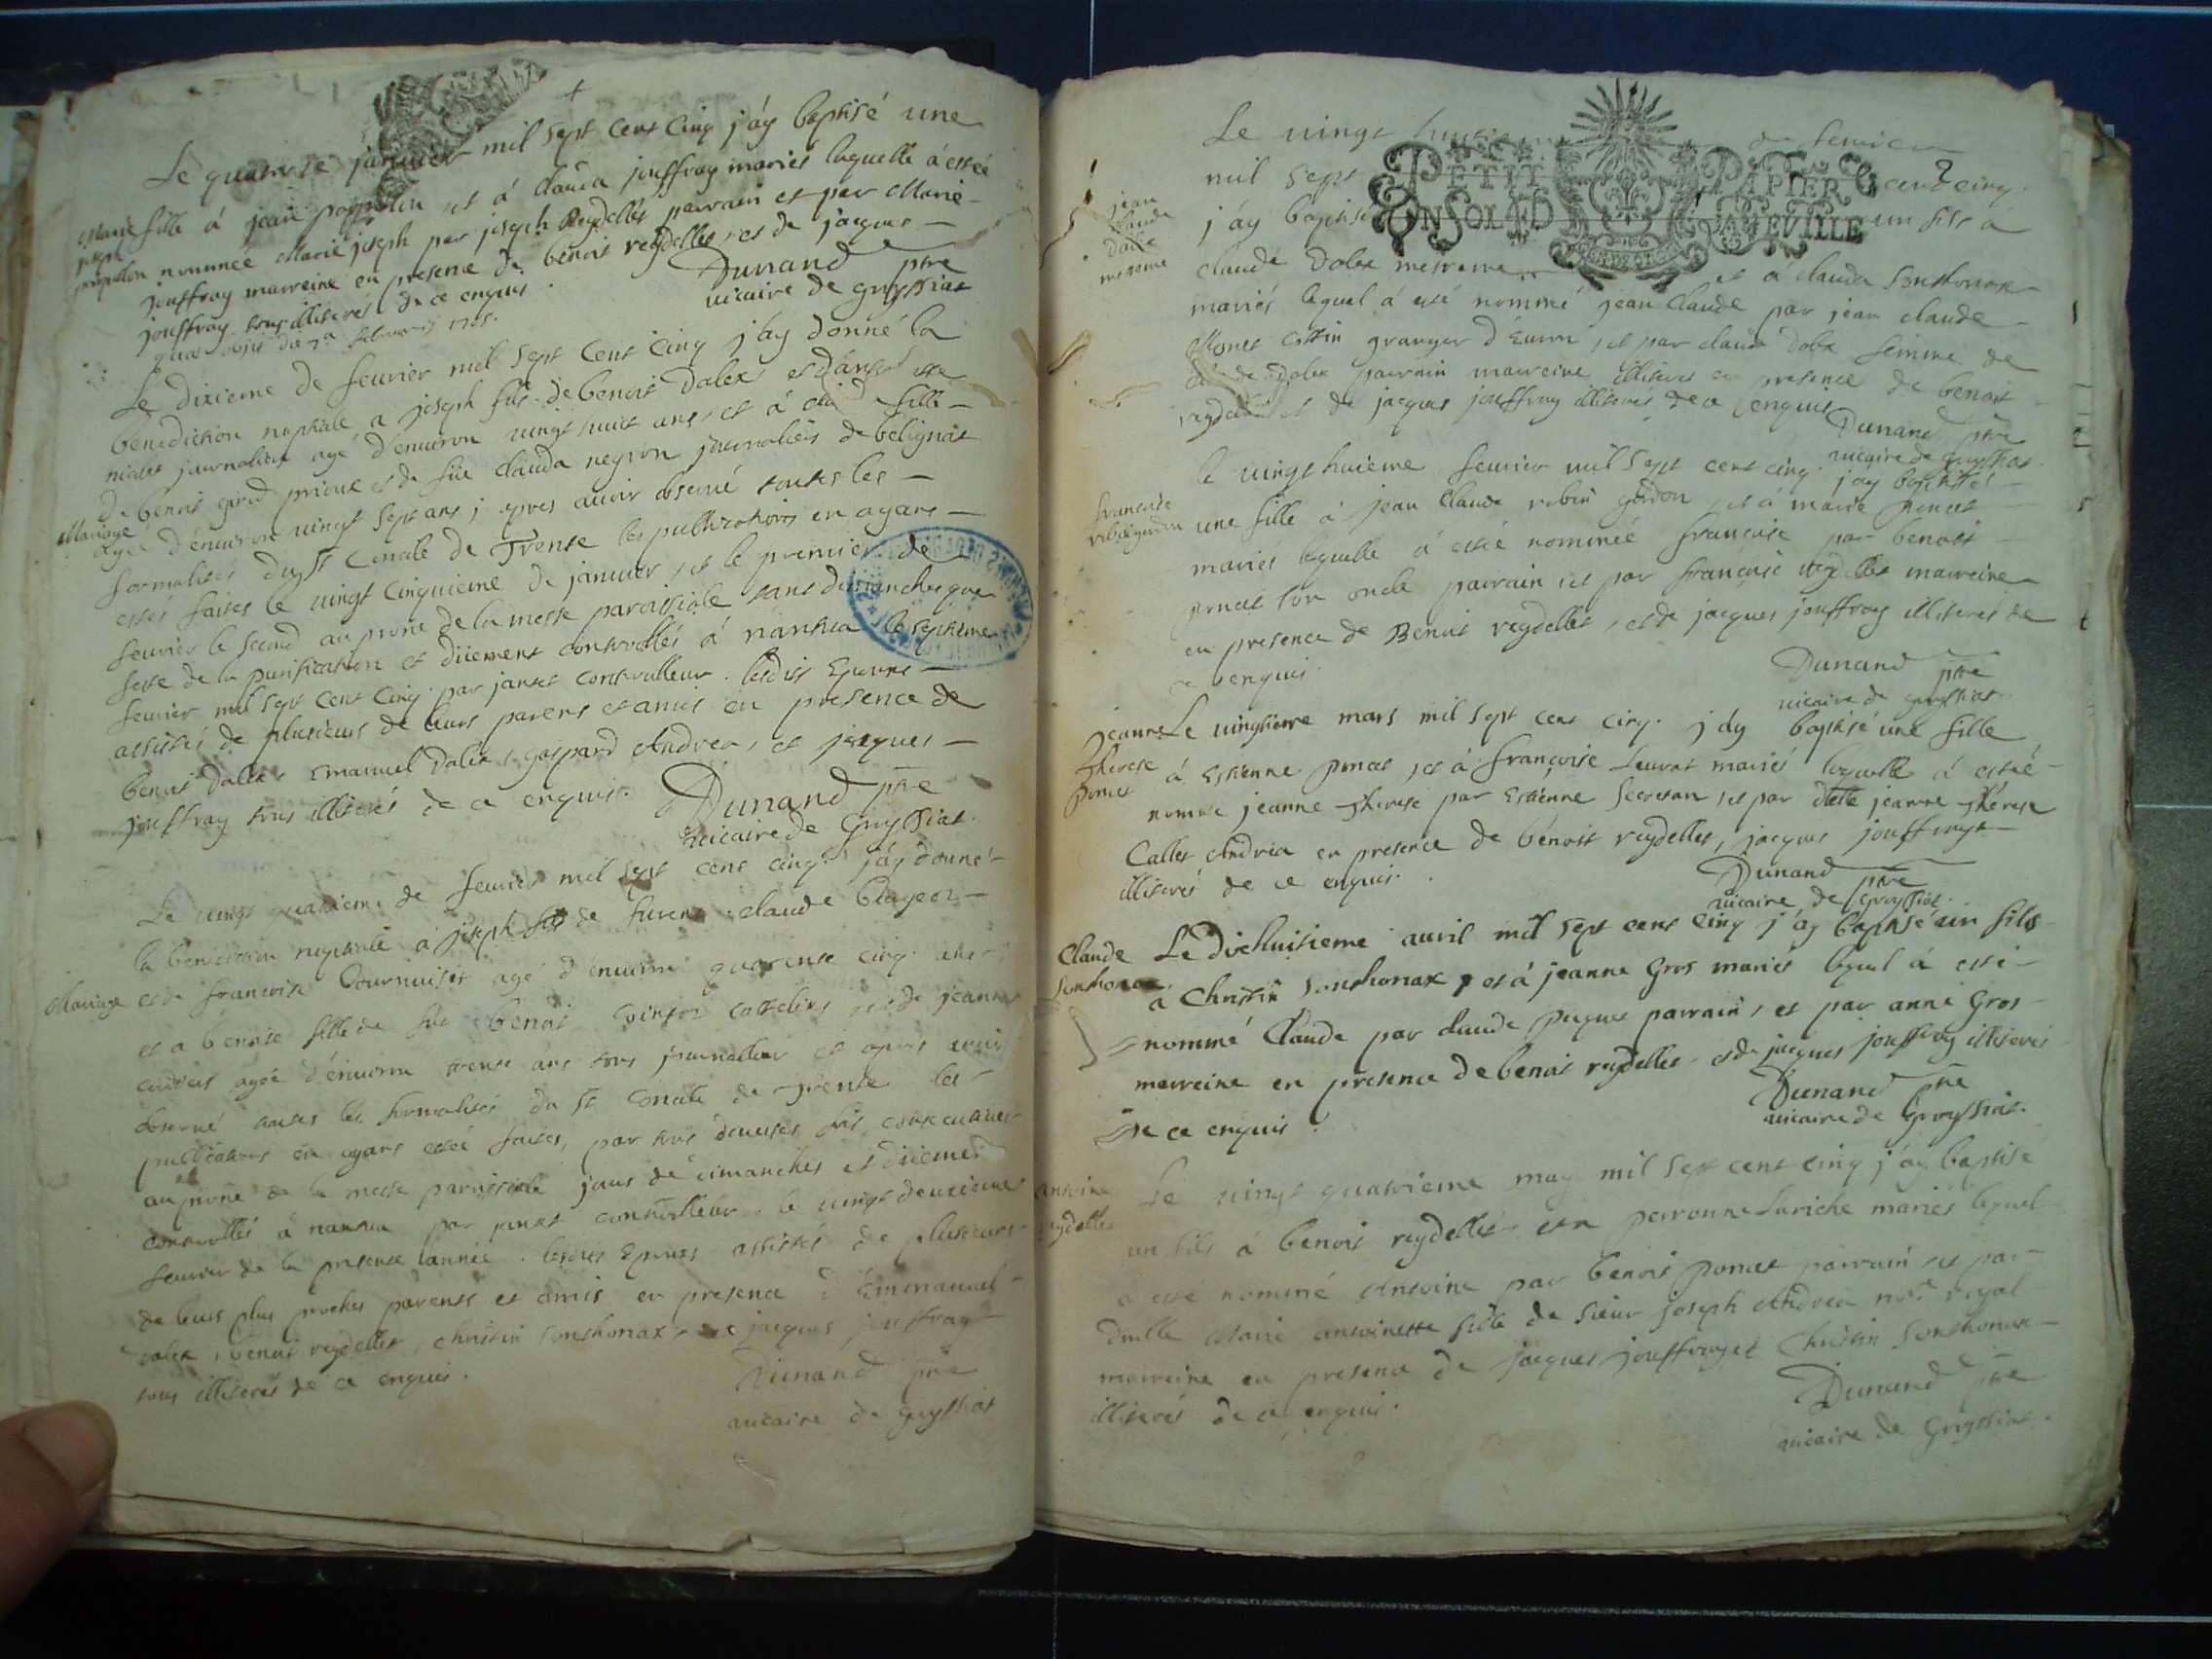 Le quatorze janvier mil sept cent cinq j'ay baptisé une
fille à jean et à Clauda jouffray mariés laquelle à estée
nommée Marie joseph par joseph Reydellet parrain et par Marie
jouffray marreine en presence de benoit reydellet, et de jacques
jouffray tous illiterés de ce enquis.
Marie
joseph
Dunand ptre
vicaire de gryssiat
1705.
Le dixieme de fevrier mil sept cent cinq j'ay donné la
benediction nuptiale a joseph fils de benoit Dalex et d'
journalier agé d'environ vingt huit ans, et à fille
de benoit prieue et de füe Clauda negron journaliers de belignat
Mariage
agée d'environ vingt sept ans, apres avoir observé toutes les
formalités du St Concile de Trente les publications en ayans
estés faites le vingt cinquieme de janvier, et le premier de
fevrier le second au prone de la messe paroissiale sans dimanches que
feste de la purification et düement controollés à nantua le septieme
fevrier mil sept cent cinq. par janet controolleur. lesdits Epouxs
assistés de plusieurs de leurs parens et amis en presence de
benoit Dalex, Emanuel Dalex, gaspard Andrea, et jacques
jouffray tous illiterés de ce enquis.
Dunand ptre
vicaire de Gryssiat.
Le vingt quatrieme de fevrier mil sept cent cinq. j'ay donné
la benediction nuptiale à joseph fils de furent claude blageon
Mariage
et de francoise Tournuisset agé d'environ quarente cinq ans
et a benoite fille de füe benoit et de jeanne
agée d'environ trente ans tous journaliers et apres avoir
observé toutes les formalités du St Concile de Trente les
publications en ayans estée faites, par trois diverses fois consecutives
au prone de la messe paroissiale jours de dimanches et düement
controollés à nantua par janet controolleur. le vingt deuxieme
fevrier de la presente année. lesdits Epouxs assistés de plusieurs
de leurs plus proches parents et amis en presence d'Emmanuel
Dalex, benoit reydellet, christin sonthonax, et jacques jouffray
tous illiterés de ce enquis.
Dunand ptre
vicaire de gryssiat
Le vingt huitieme de fevrier
mil sept cent cinq.
j'ay baptisé un fils a
PETIT PAPIER
UN SOL 4 D LA FEUILLE
2
jean
Claude
Dalex
mesreme
claude Dalex mesreme et à clauda sonthonax
mariés lequel à esté nommé jean Claude par jean claude
Monet Cottin granger d'Euron, et par claud Dalex femme de
Dalex parrain marreine illiteres en presence de benoit
reydellet et de jacques jouffray illiterés de ce enquis
Dunand ptre
vicaire de gryssiat.
le vingt huieme fevrier mil sept cent cinq. j'ay baptisé
francoise
robin gordon
une fille à jean Claude robin gordon, et à marie poncet
mariés laquelle à estée nommée francoise par benoit
poncet son oncle parrain, et par francoise reydellet marreine
en presence de Benoit reydellet, et de jacques jouffray illiterés de
ce enquis.
Dunand ptre
vicaire de gryssiat.
jeanne
Therese
poncet
Le vingtieme mars mil sept cent cinq. j'ay baptisé une fille
à Estienne poncet, et à françoise Leurat mariés laquelle à estée
nomée jeanne Therese par Estienne Secretan, et par dlle jeanne Therese
Callet Andrea en presence de benoit reydellet, jacques jouffrays
illiterés de ce enquis.
Dunand ptre
vicaire de Gryssiat.
Claude
Sonthonax
Le dixhuitieme avril mil sept cent cinq j'ay baptisé un fils
à Christin Sonthonax, et à jeanne Gros mariés lequel à esté
nommé Claude par claude puguet parrain, et par anne Gros
marreine en presence de benoit reydellet et de jacques jouffray illiterés
de ce enquis.
Dunand ptre
vicaire de Gryssiat.
Antoine
reydellet
Le vingt quatrieme may mil sept cent cinq j'ay baptisé
un fils à benoit reydellet et a perronne Lariche mariés lequel
a esté nommé Antoine par benoit poncet parrain, et par
dmlle Marie antoinette fille de sieur joseph Andrea nore royal
marreine en presence de jacques jouffray et Christin Sonthonax
illiterés de ce enquis.
Dunand ptre
vicaire de Gryssiat.